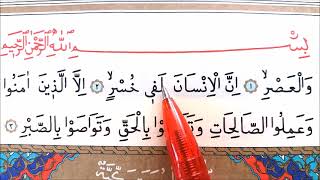 بِسْمِ اللّٰهِ الرَّحْمٰنِ الرَّحٖيمِ
وَالْعَصْرِۙ ﴿١﴾ اِنَّ الْاِنْسَانَ لَفٖي خُسْرٍۙ ﴿٢﴾ اِلَّا الَّذٖينَ اٰمَنُوا
وَعَمِلُوا الصَّالِحَاتِ وَتَوَاصَوْا بِالْحَقِّ وَتَوَاصَوْا بِالصَّبْرِ ﴿٣﴾